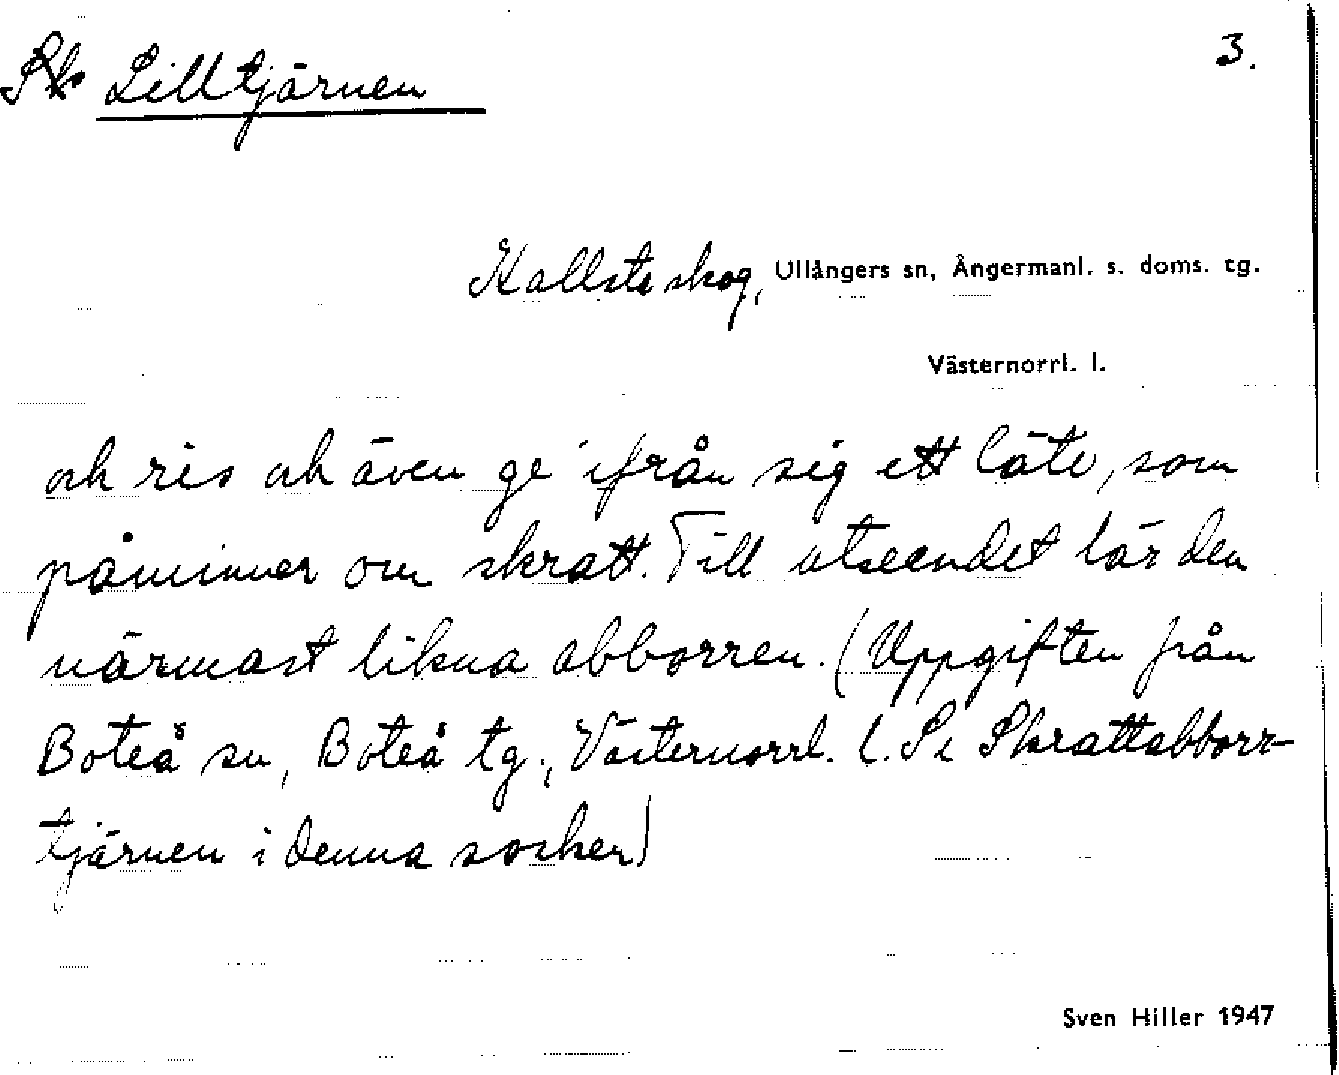 3.
Lilltjärnen
Mallsta skog, Ullångers sn, Ångermanl. s. doms. tg.
Västernorrl. l.
och ris och även ge ifrån sig ett läte, som
påminner om skratt. Till utseendet lär den
närmast likna abborren. (Uppgiften från
Boteå sn, Boteå tg., Västernorrl. l. Se Skrattabborr-
tjärnen i denna socken)
Sven Hiller 1947